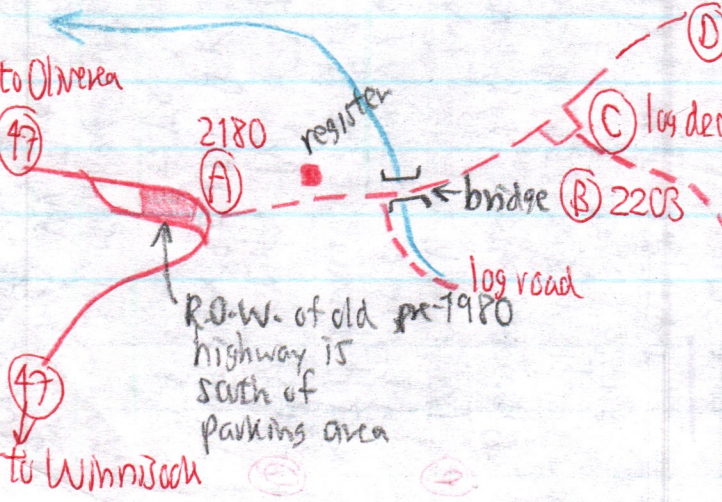 D
to Oliverea
47
2180
register
A
C
log de
bridge
B 2203
log road
R.O.W. of old pre-1980
highway is
south of
parking area
47
to Winnisook